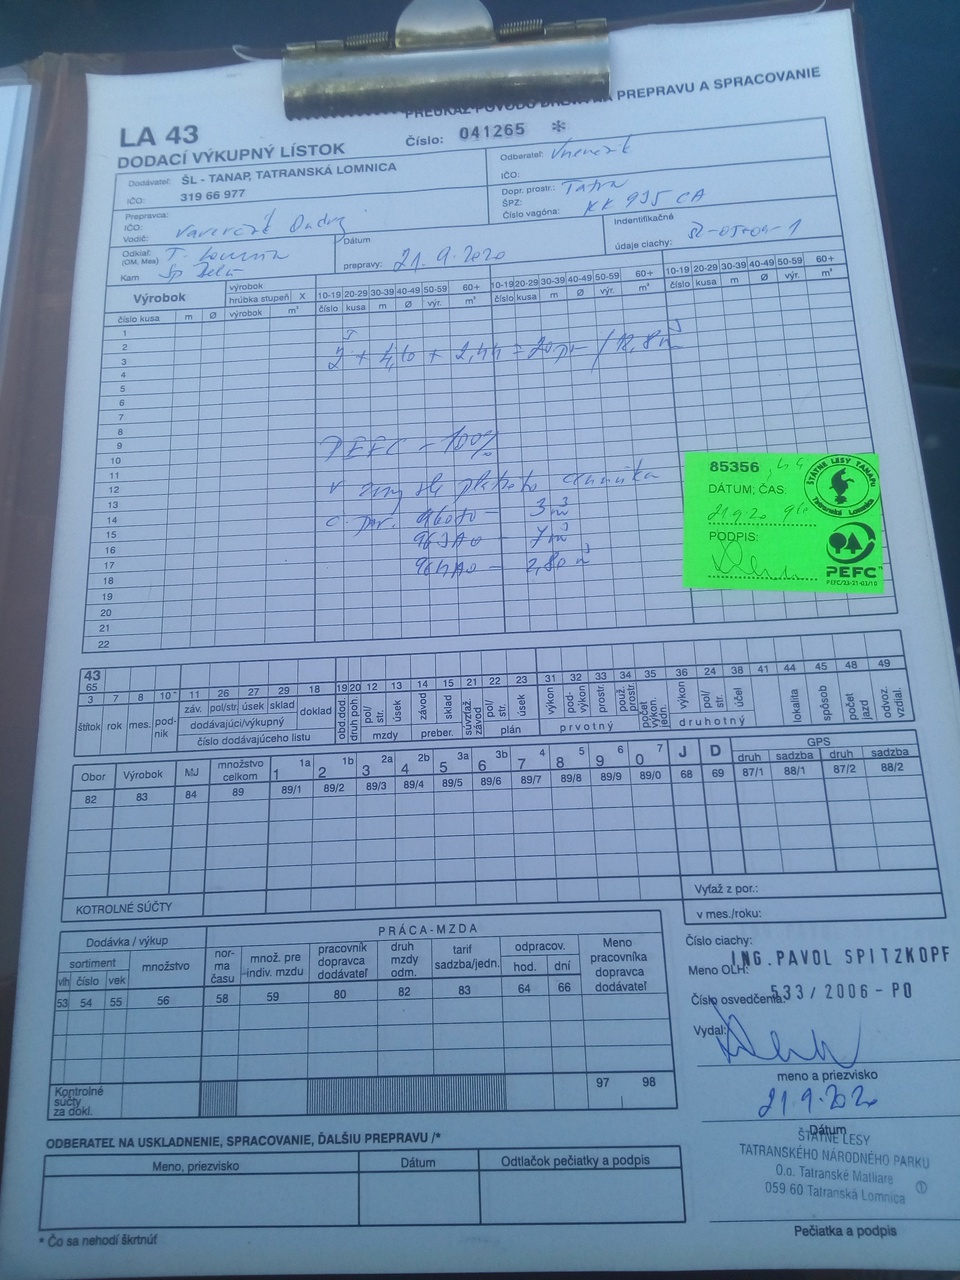 PREPRAVU A SPRACOVANIE
LA 43
DODACÍ VÝKUPNÝ LÍSTOK
Číslo: 041265 *
Dodávateľ: ŠL - TANAP, TATRANSKÁ LOMNICA
IČO: 319 66 977
Odberateľ:
IČO:
Prepravca:
IČO:
Vodič:
Dopr. prostr.: Tatra
ŠPZ: KK 935 CA
Číslo vagóna:
Odkiaľ: T. Lomnica
(OM, Mes)
Kam
Dátum
prepravy: 21.9.2020
Indentifikačné
údaje ciachy:
Výrobok
výrobok
hrúbka stupeň X
10-19 20-29 30-39 40-49 50-59 60+
10-19 20-29 30-39 40-49 50-59 60+
10-19 20-29 30-39 40-49 50-59 60+
číslo kusa m Ø výrobok m³
číslo kusa m Ø výr. m³
číslo kusa m Ø výr. m³
číslo kusa m Ø výr. m³
1
2
3
4
5
6
7
8
9
10
11
12
13
14
15
16
17
18
19
20
21
22
PEFC - 100%
3 m³
7 m³
2,80 m³
85356
DÁTUM; ČAS:
PODPIS:
ŠTÁTNE LESY TANAPu
Tatranská Lomnica
PEFC™
43
65
3 7 8 10 11 26 27 29 18 19 20 12 13 14 15 21 22 23 31 32 33 34 35 36 24 38 41 44 45 48 49
štítok rok mes. pod-nik záv. pol/str. úsek sklad doklad
dodávajúci/výkupný
číslo dodávajúceho listu
obd.dod. druh poh. pol/str. úsek závod sklad súvzťaž. závod pol/str. úsek
mzdy preber. plán
výkon pod-výkon prostr. použ. prostr. počet výkon. jedn. výkon pol/str. účel
prvotný druhotný
lokalita spôsob počet jazd odvoz. vzdial.
Obor Výrobok MJ množstvo celkom 1 1a 2 1b 3 2a 4 2b 5 3a 6 3b 7 4 8 5 9 6 0 7 J D GPS
druh sadzba druh sadzba
82 83 84 89 89/1 89/2 89/3 89/4 89/5 89/6 89/7 89/8 89/9 89/0 68 69 87/1 88/1 87/2 88/2
KOTROLNÉ SÚČTY
Vyťaž z por.:
v mes./roku:
Dodávka / výkup
PRÁCA-MZDA
sortiment množstvo
vlh číslo vek
nor-ma času
množ. pre indiv. mzdu
pracovník dopravca dodávateľ
druh mzdy odm.
tarif sadzba/jedn.
odpracov.
hod. dní
Meno pracovníka dopravca dodávateľ
53 54 55 56 58 59 80 82 83 64 66
97 98
Kontrolné súčty za dokl.
Číslo ciachy:
Meno OLH: ING. PAVOL SPITZKOPF
Číslo osvedčenia: 533/2006-PO
Vydal:
meno a priezvisko
21.9.2020
Dátum
ŠTÁTNE LESY
TATRANSKÉHO NÁRODNÉHO PARKU
O.o. Tatranské Matliare
059 60 Tatranská Lomnica
Pečiatka a podpis
ODBERATEĽ NA USKLADNENIE, SPRACOVANIE, ĎALŠIU PREPRAVU /*
Meno, priezvisko Dátum Odtlačok pečiatky a podpis
* Čo sa nehodí škrtnúť